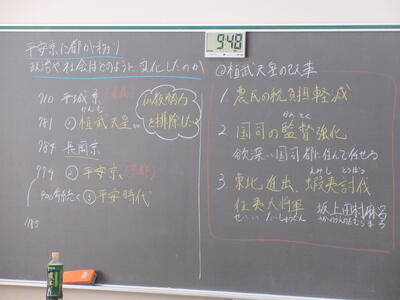 平安京に都がうつり
政治や社会はどのように変化したのか
9:48
710 平城京（奈良）
かんむ
781 ①桓武天皇
仏教勢力
を排除した
784 長岡京
794 ②平安京（京都）
400年続く ③平安時代
1185
@桓武天皇の改革
1. 農民の税負担軽減
かんとく
2. 国司の監督強化
欲深い国司 都に住んで任せる
えみし とうばつ
3. 東北進出、蝦夷討伐
征夷大将軍 坂上田村麻呂
せいいたいしょうぐん さかのうえのたむらまろ